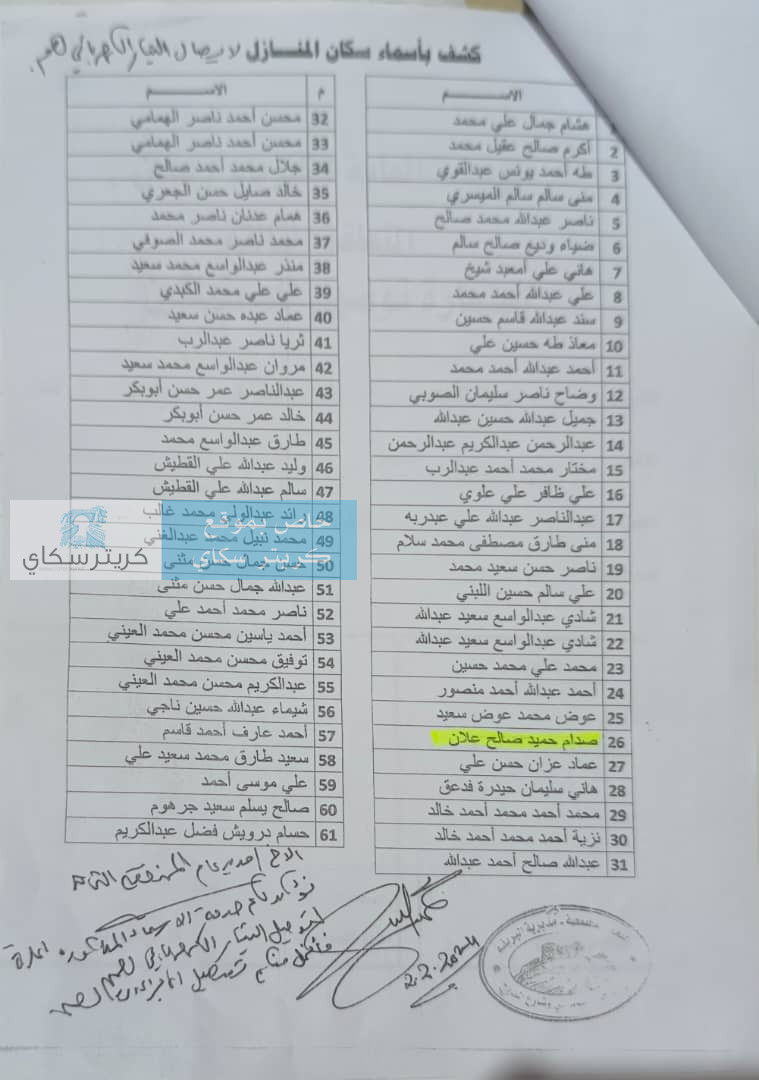 كشف بأسماء سكان المنازل لايصال التيار الكهربائي لهم
الاســـم
1 هشام جمال علي محمد
2 أكرم صالح عقيل محمد
3 طه أحمد يونس عبدالقوي
4 منى سالم سالم الميسري
5 ناصر عبدالله محمد صالح
6 ضياء وديع صالح سالم
7 هاني علي أمعبد شيخ
8 علي عبدالله أحمد محمد
9 سند عبدالله قاسم حسين
10 معاذ طه حسين علي
11 أحمد عبدالله أحمد محمد
12 وضاح ناصر سليمان الصوبي
13 جميل عبدالله حسين عبدالله
14 عبدالرحمن عبدالكريم عبدالرحمن
15 مختار محمد أحمد عبدالرب
16 علي ظافر علي علوي
17 عبدالناصر عبدالله علي عبدربه
18 منى طارق مصطفى محمد سلام
19 ناصر حسن سعيد محمد
20 علي سالم حسين اللبني
21 شادي عبدالواسع سعيد عبدالله
22 شادي عبدالواسع سعيد عبدالله
23 محمد علي محمد حسين
24 أحمد عبدالله أحمد منصور
25 عوض محمد عوض سعيد
26 صدام حميد صالح علان
27 عماد عزان حسن علي
28 هاني سليمان حيدرة فدعق
29 محمد أحمد محمد أحمد خالد
30 نزية أحمد محمد أحمد خالد
31 عبدالله صالح أحمد عبدالله
م الاســـم
32 محسن أحمد ناصر الهمامي
33 محسن أحمد ناصر الهمامي
34 جلال محمد أحمد صالح
35 خالد صايل حسن الجعري
36 همام عدنان ناصر محمد
37 محمد ناصر محمد الصوفي
38 منذر عبدالواسع محمد سعيد
39 علي علي محمد الكبدي
40 عماد عبده حسن سعيد
41 ثريا ناصر عبدالرب
42 مروان عبدالواسع محمد سعيد
43 عبدالناصر عمر حسن أبوبكر
44 خالد عمر حسن أبوبكر
45 طارق عبدالواسع محمد
46 وليد عبدالله علي القطيش
47 سالم عبدالله علي القطيش
48 رائد عبدالولي محمد غالب
49 محمد نبيل محمد عبدالغني
50 حسن جمال حسن مثنى
51 عبدالله جمال حسن مثنى
52 ناصر محمد أحمد علي
53 أحمد ياسين محسن محمد العيني
54 توفيق محسن محمد العيني
55 عبدالكريم محسن محمد العيني
56 شيماء عبدالله حسين ناجي
57 أحمد عارف أحمد قاسم
58 سعيد طارق محمد سعيد علي
59 علي موسى أحمد
60 صالح يسلم سعيد جرهوم
61 حسام درويش فضل عبدالكريم
خاص بموقع
كريتر سكاي
كريتر سكاي
الاخ / مدير عام المنطقة
لتوصيل التيار الكهربائي لهم
2.2.2024